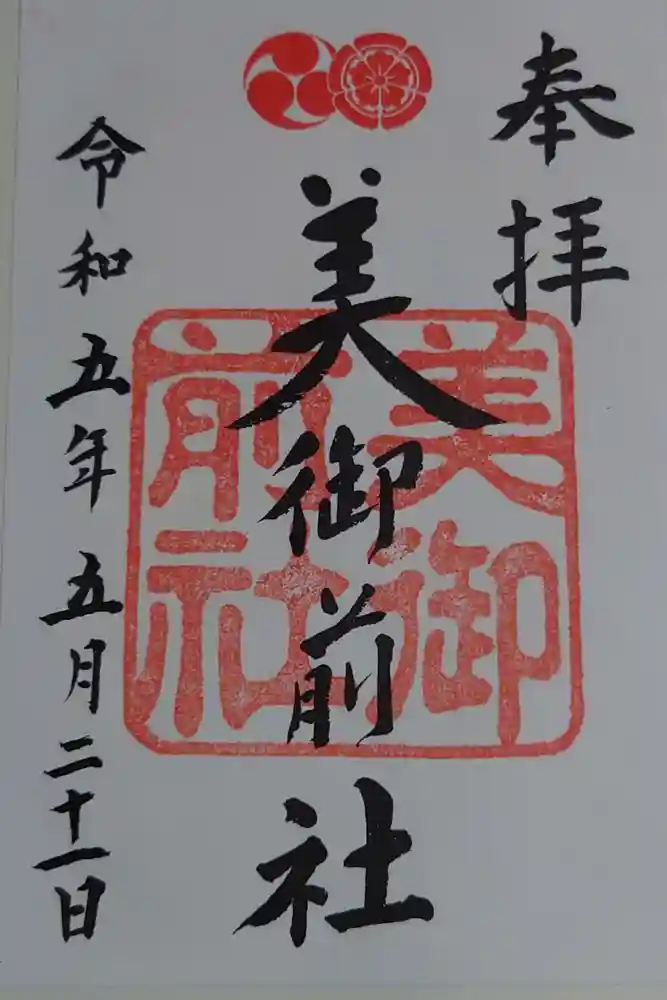 奉拝
美御前社
美御前社
令和五年五月二十一日